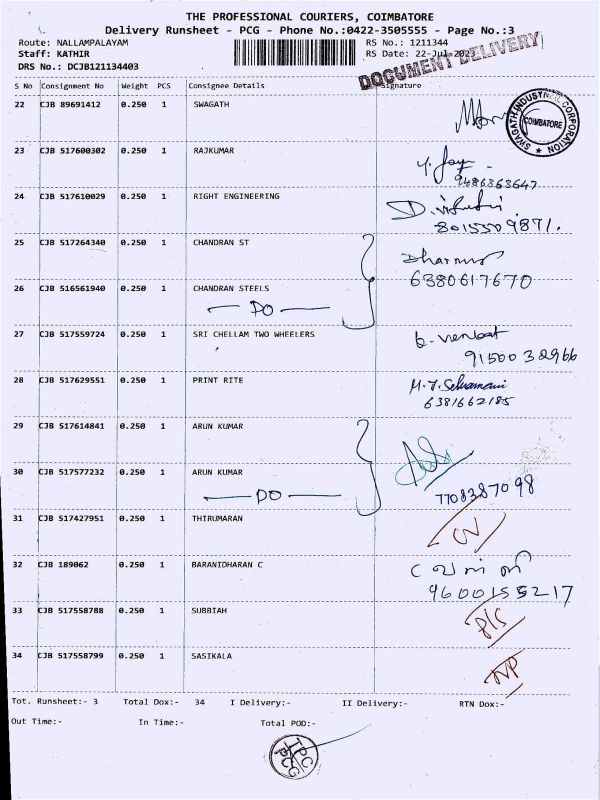 THE PROFESSIONAL COURIERS, COIMBATORE
Delivery Runsheet - PCG - Phone No.:0422-3505555 - Page No.:3
Route: NALLAMPALAYAM RS No.: 1211344
Staff: KATHIR RS Date: 22-Jul-2023
DRS No.: DCJB121134403
DOCUMENT DELIVERY
S No Consignment No Weight PCS Consignee Details Signature
22 CJB 89691412 0.250 1 SWAGATH
SWAGATH INDUSTRIAL CORPORATION
COIMBATORE
23 CJB 517600302 0.250 1 RAJKUMAR
9486363647
24 CJB 517610029 0.250 1 RIGHT ENGINEERING
8015509871.
25 CJB 517264340 0.250 1 CHANDRAN ST
6380617670
26 CJB 516561940 0.250 1 CHANDRAN STEELS
DO
27 CJB 517559724 0.250 1 SRI CHELLAM TWO WHEELERS
venkat
9150032966
28 CJB 517629551 0.250 1 PRINT RITE
M.J. Selvamani
6381662185
29 CJB 517614841 0.250 1 ARUN KUMAR
30 CJB 517577232 0.250 1 ARUN KUMAR
DO 7708387098
31 CJB 517427951 0.250 1 THIRUMARAN
32 CJB 189062 0.250 1 BARANIDHARAN C
9600155217
33 CJB 517558788 0.250 1 SUBBIAH
34 CJB 517558799 0.250 1 SASIKALA
Tot. Runsheet:- 3 Total Dox:- 34 I Delivery:- II Delivery:- RTN Dox:-
Out Time:- In Time:- Total POD:-